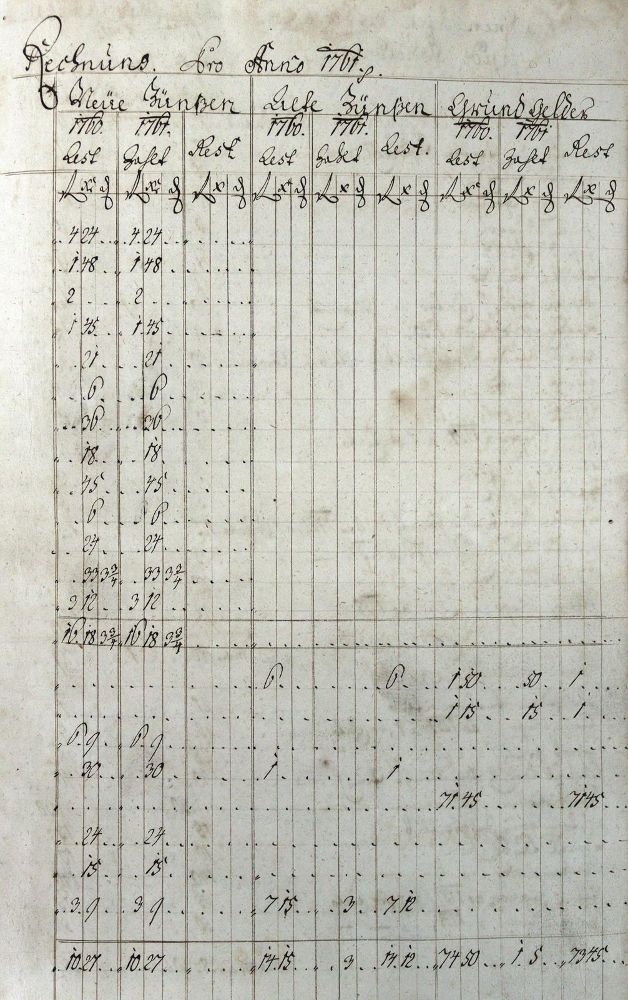 Rechnung. Pro Anno 1761.
Neüe Zünßen Alte Zünßen Grund Gelder
1760. 1761. 1760. 1761. 1760. 1761
Rest Zahlt Rest Rest Zahlt Rest. Rest Zahlt Rest
f xr d f xr d f x d f x d f x d f x d f x d f x d f x d
4 24 4 24
1 48 1 48
2 2
1 45 1 45
21 21
6 6
36 36
18 18
45 45
6 6
24 24
33 3 3/4 33 3 3/4
3 12 3 12
16 18 3 3/4 16 18 3 3/4
6 6 1 50 50 1
1 15 15 1
6 9 6 9
30 30 1 1
71 45 71 45
24 24
15 15
3 9 3 9 7 15 3 7 12
10 27 10 27 14 15 3 14 12 74 50 1 5 73 45